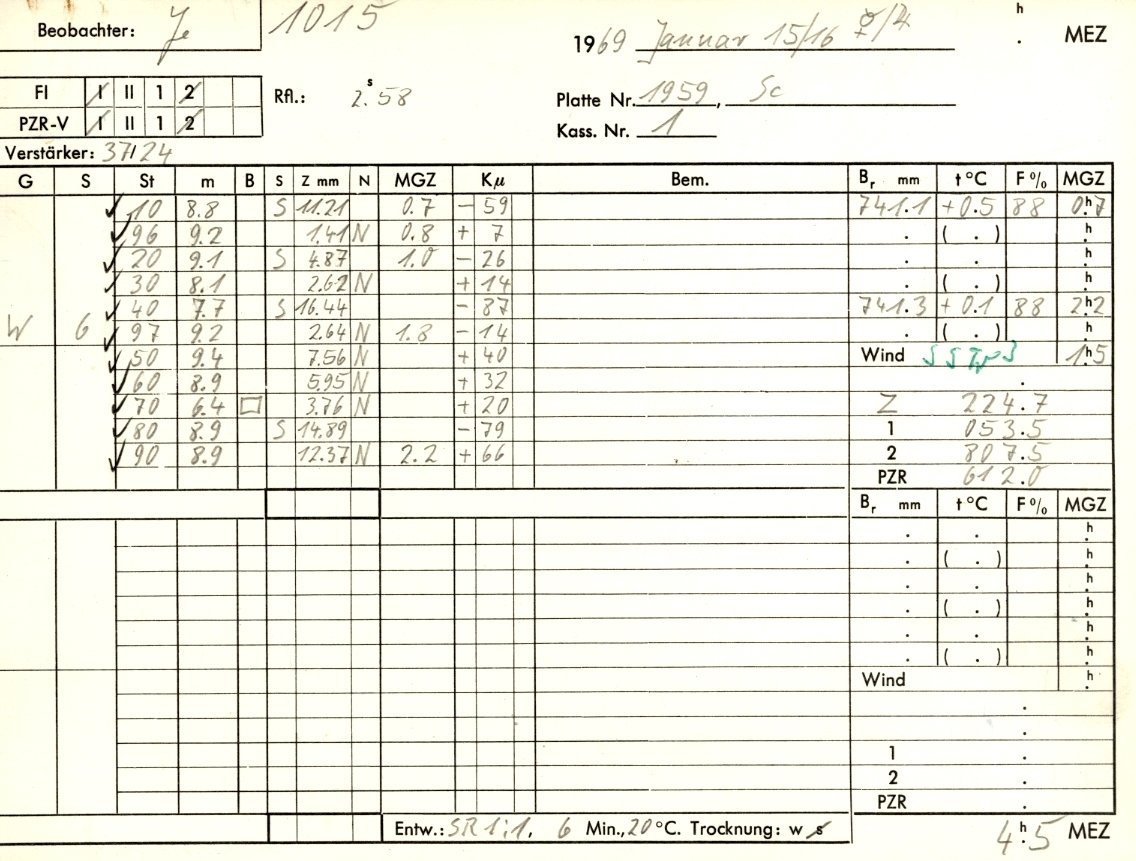 Beobachter: Je 1015 h
1969 Januar 15/16 ☿/♃ . MEZ
FI I II 1 2 Rfl.: 2.s58 Platte Nr. 1959, Sc
PZR-V I II 1 2 Kass. Nr. 1
Verstärker: 37/24
G S St m B S Z mm N MGZ Kµ Bem. Br mm t °C F % MGZ
10 8.8 S 11.21 0.7 - 59 741.1 +0.5 88 0.h7
96 9.2 1.41 N 0.8 + 7 . ( . ) .h
20 9.1 S 4.87 1.0 - 26 . . .h
30 8.1 2.62 N + 14 . ( . ) .h
40 7.7 S 16.44 - 87 741.3 +0.1 88 2.h2
W 6 97 9.2 2.64 N 1.8 - 14 . ( . ) .h
50 9.4 7.56 N + 40 Wind 1.h5
60 8.9 5.95 N + 32 .
70 6.4 □ 3.76 N + 20 Z 224.7
80 8.9 S 14.89 - 79 1 053.5
90 8.9 12.37 N 2.2 + 66 2 807.5
PZR 612.0
Br mm t °C F % MGZ
. . .h
. ( . ) .h
. . .h
. ( . ) .h
. . .h
. ( . ) .h
Wind .h
.
.
1 .
2 .
PZR .
Entw.: SR 1:1, 6 Min., 20 °C. Trocknung: w s 4.h5 MEZ